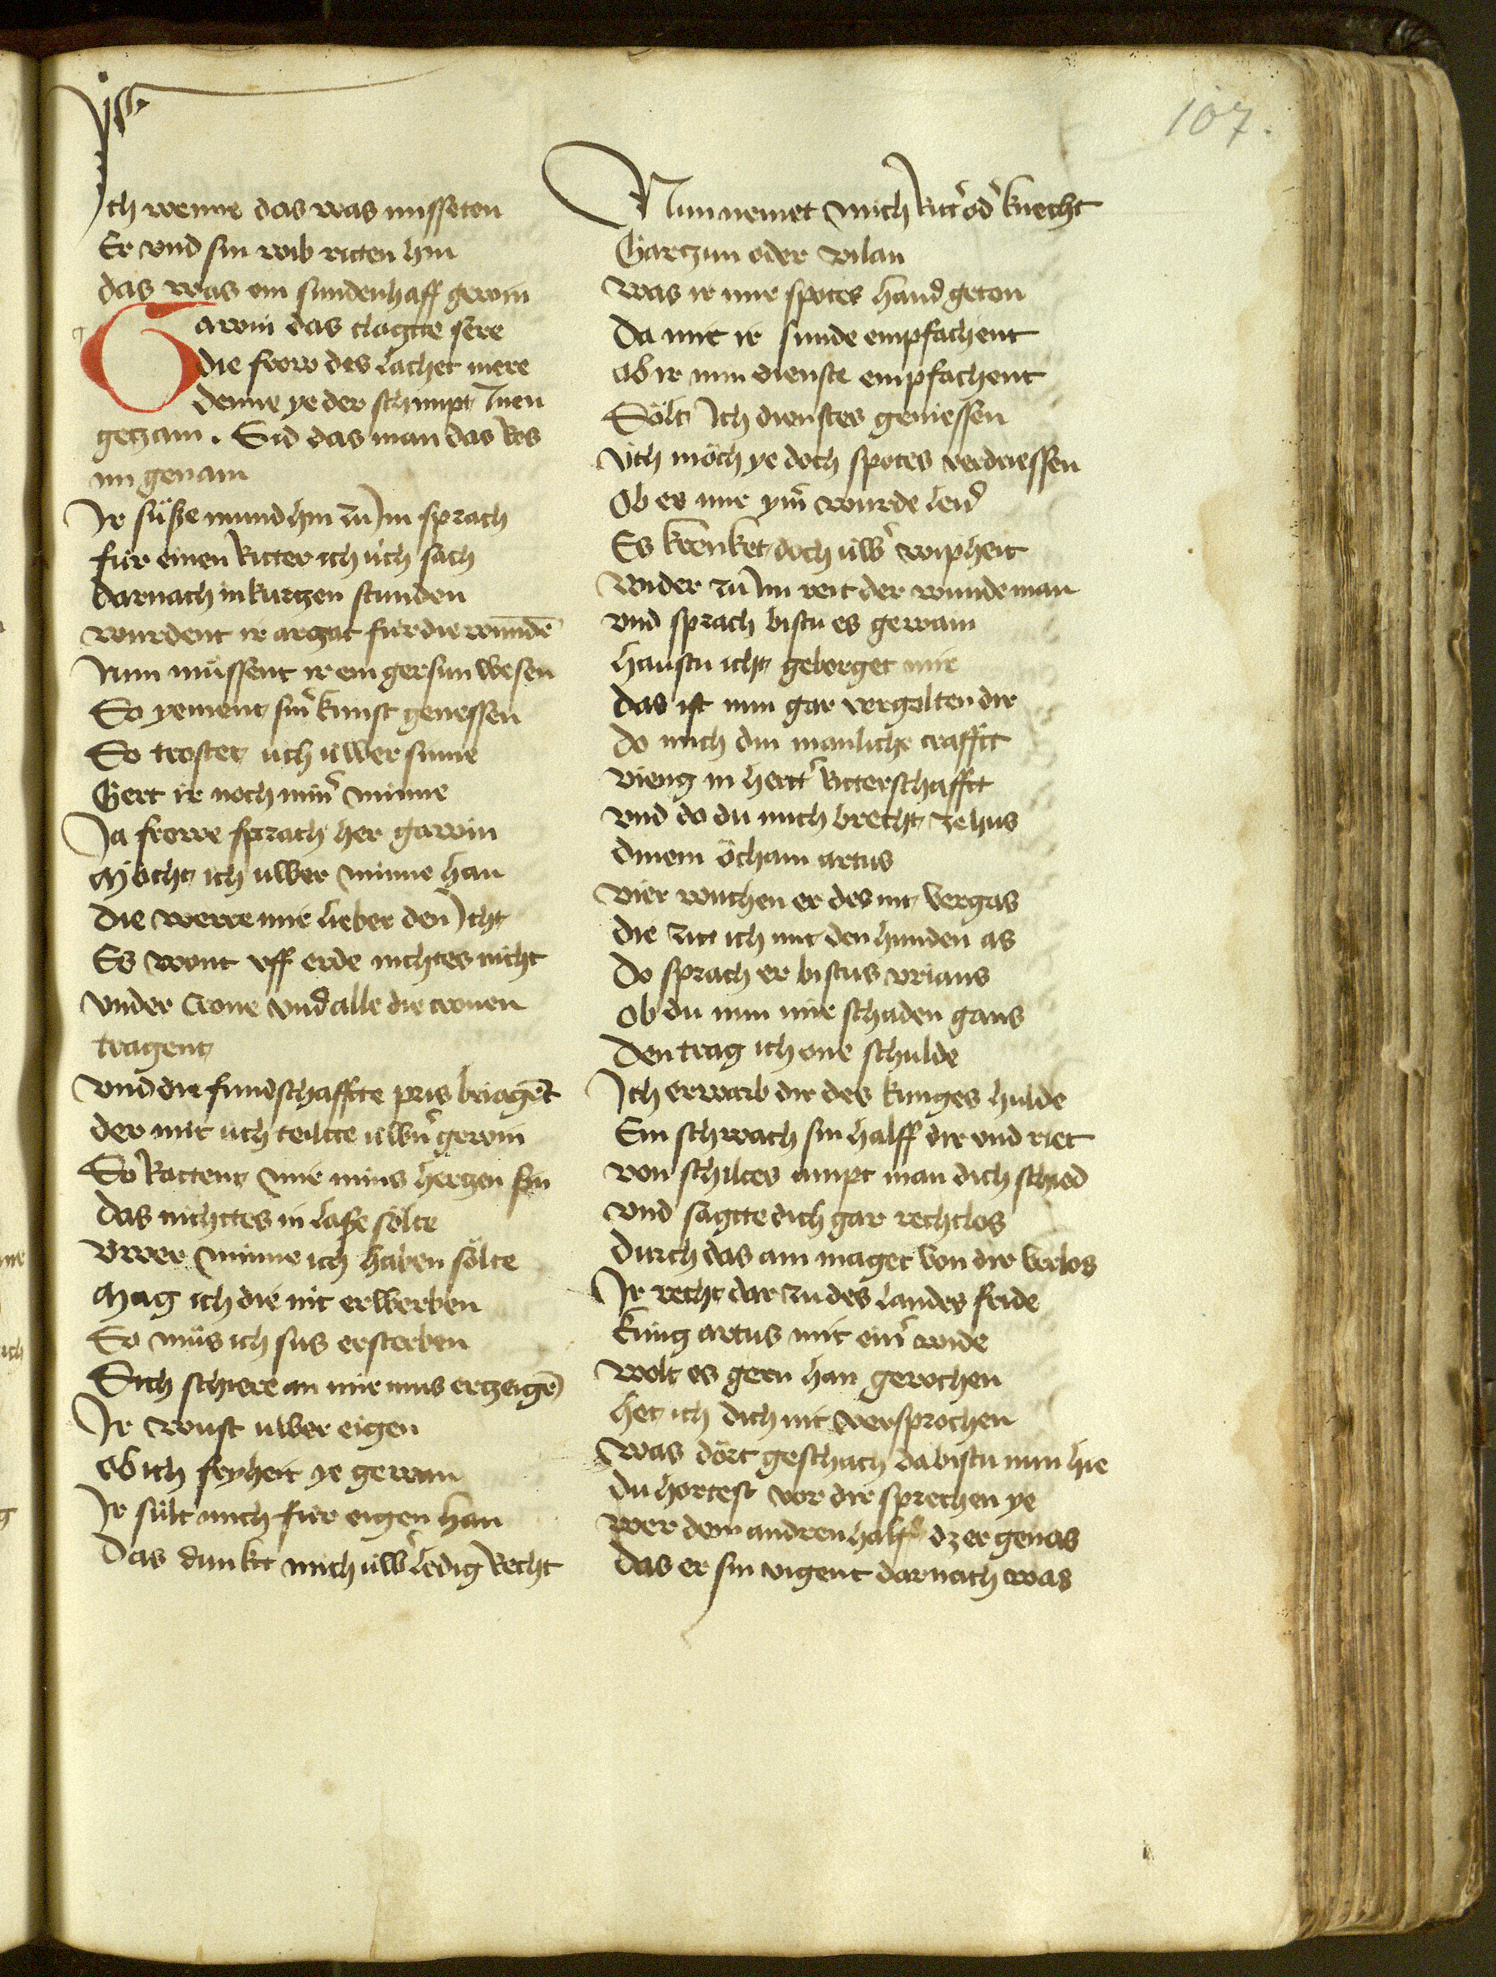 107.
Ich wenne das was missetan
Er vnd sin wib ritten hin
das was ein sundenhaff gewin
Gawin das clagtte sere
die frow des lachet mere
denne ye der schimpt Inen
getzam. Sid das man das Ros
im genam
Ir süße mund hin zů Im sprach
für einen Ritter ich üch sach
darnach in kurtzen stunden
wurdent ir artzat für die wundē
Nun müssent ir ein gersun wesen
So yement sin̄ kunst genessen
So troster üch üwer sinne
Gert ir noch min̄ minne
Ja frowe sprach her gawin
Möcht ich uwer minne han
die werre mir lieber den Icht
Es wont vff erde nichtes nicht
vnder Crone vnd alle die cronen
tragent
vnd die frundschaffte pris beiagēt
der mir üch teiltte üwn̄ gewin
So Rattent mir mins hertzen sin
das nichttes in laße sölte
vwer minne ich haben sölte
Mag ich die nit erwerben
So müs ich sus ersterben
Sich schiere an mir mus ertzeigē
Ir wust uwer eigen
ob ich fryheit ye gewan
Ir sült mich für eigen han
Das dunkt mich üwer ledig Recht
Nun nemet mich Ritter oder knecht
Gartzun oder vilan
was ir mir spotes hand geton
Da mit ir sunde empfachent
ob ir min dienste empfachent
Sölt Ich dienstes geniessen
üch möch ye doch spotes verdriessen
Ob es mir ymer wurde leid
Es krenket doch üwer wipheit
wider zů Im reit der wunde man
vnd sprach bistu es gewain
haustu icht geborget mir
das ist nun gar vergolten dir
do mich din manliche crafftt
vieng in hertter Ritterschafftt
vnd do du mich brecht ze hus
dinem öcham artus
vier wuchen er des nit vergas
die zitt ich mit den hunden as
Do sprach er bistus vrians
Ob du nun mir schaden gans
Den trag ich one schulde
Ich erwarb dir des kunges hulde
Ein schwach sin halff dir vnd riet
von schiltes ampt man dich schied
vnd sagtte dich gar rechtlos
durch das ain maget von dir verlos
Ir recht dar zu des landes fride
küng artus mit einer wide
wolt es gern han gerochen
het ich dich nit versprochen
was dört geschach da bistu nun hie
du hortest vor dir sprechen ye
wer dem andren halff dz er genas
das er sin vigent darnach was